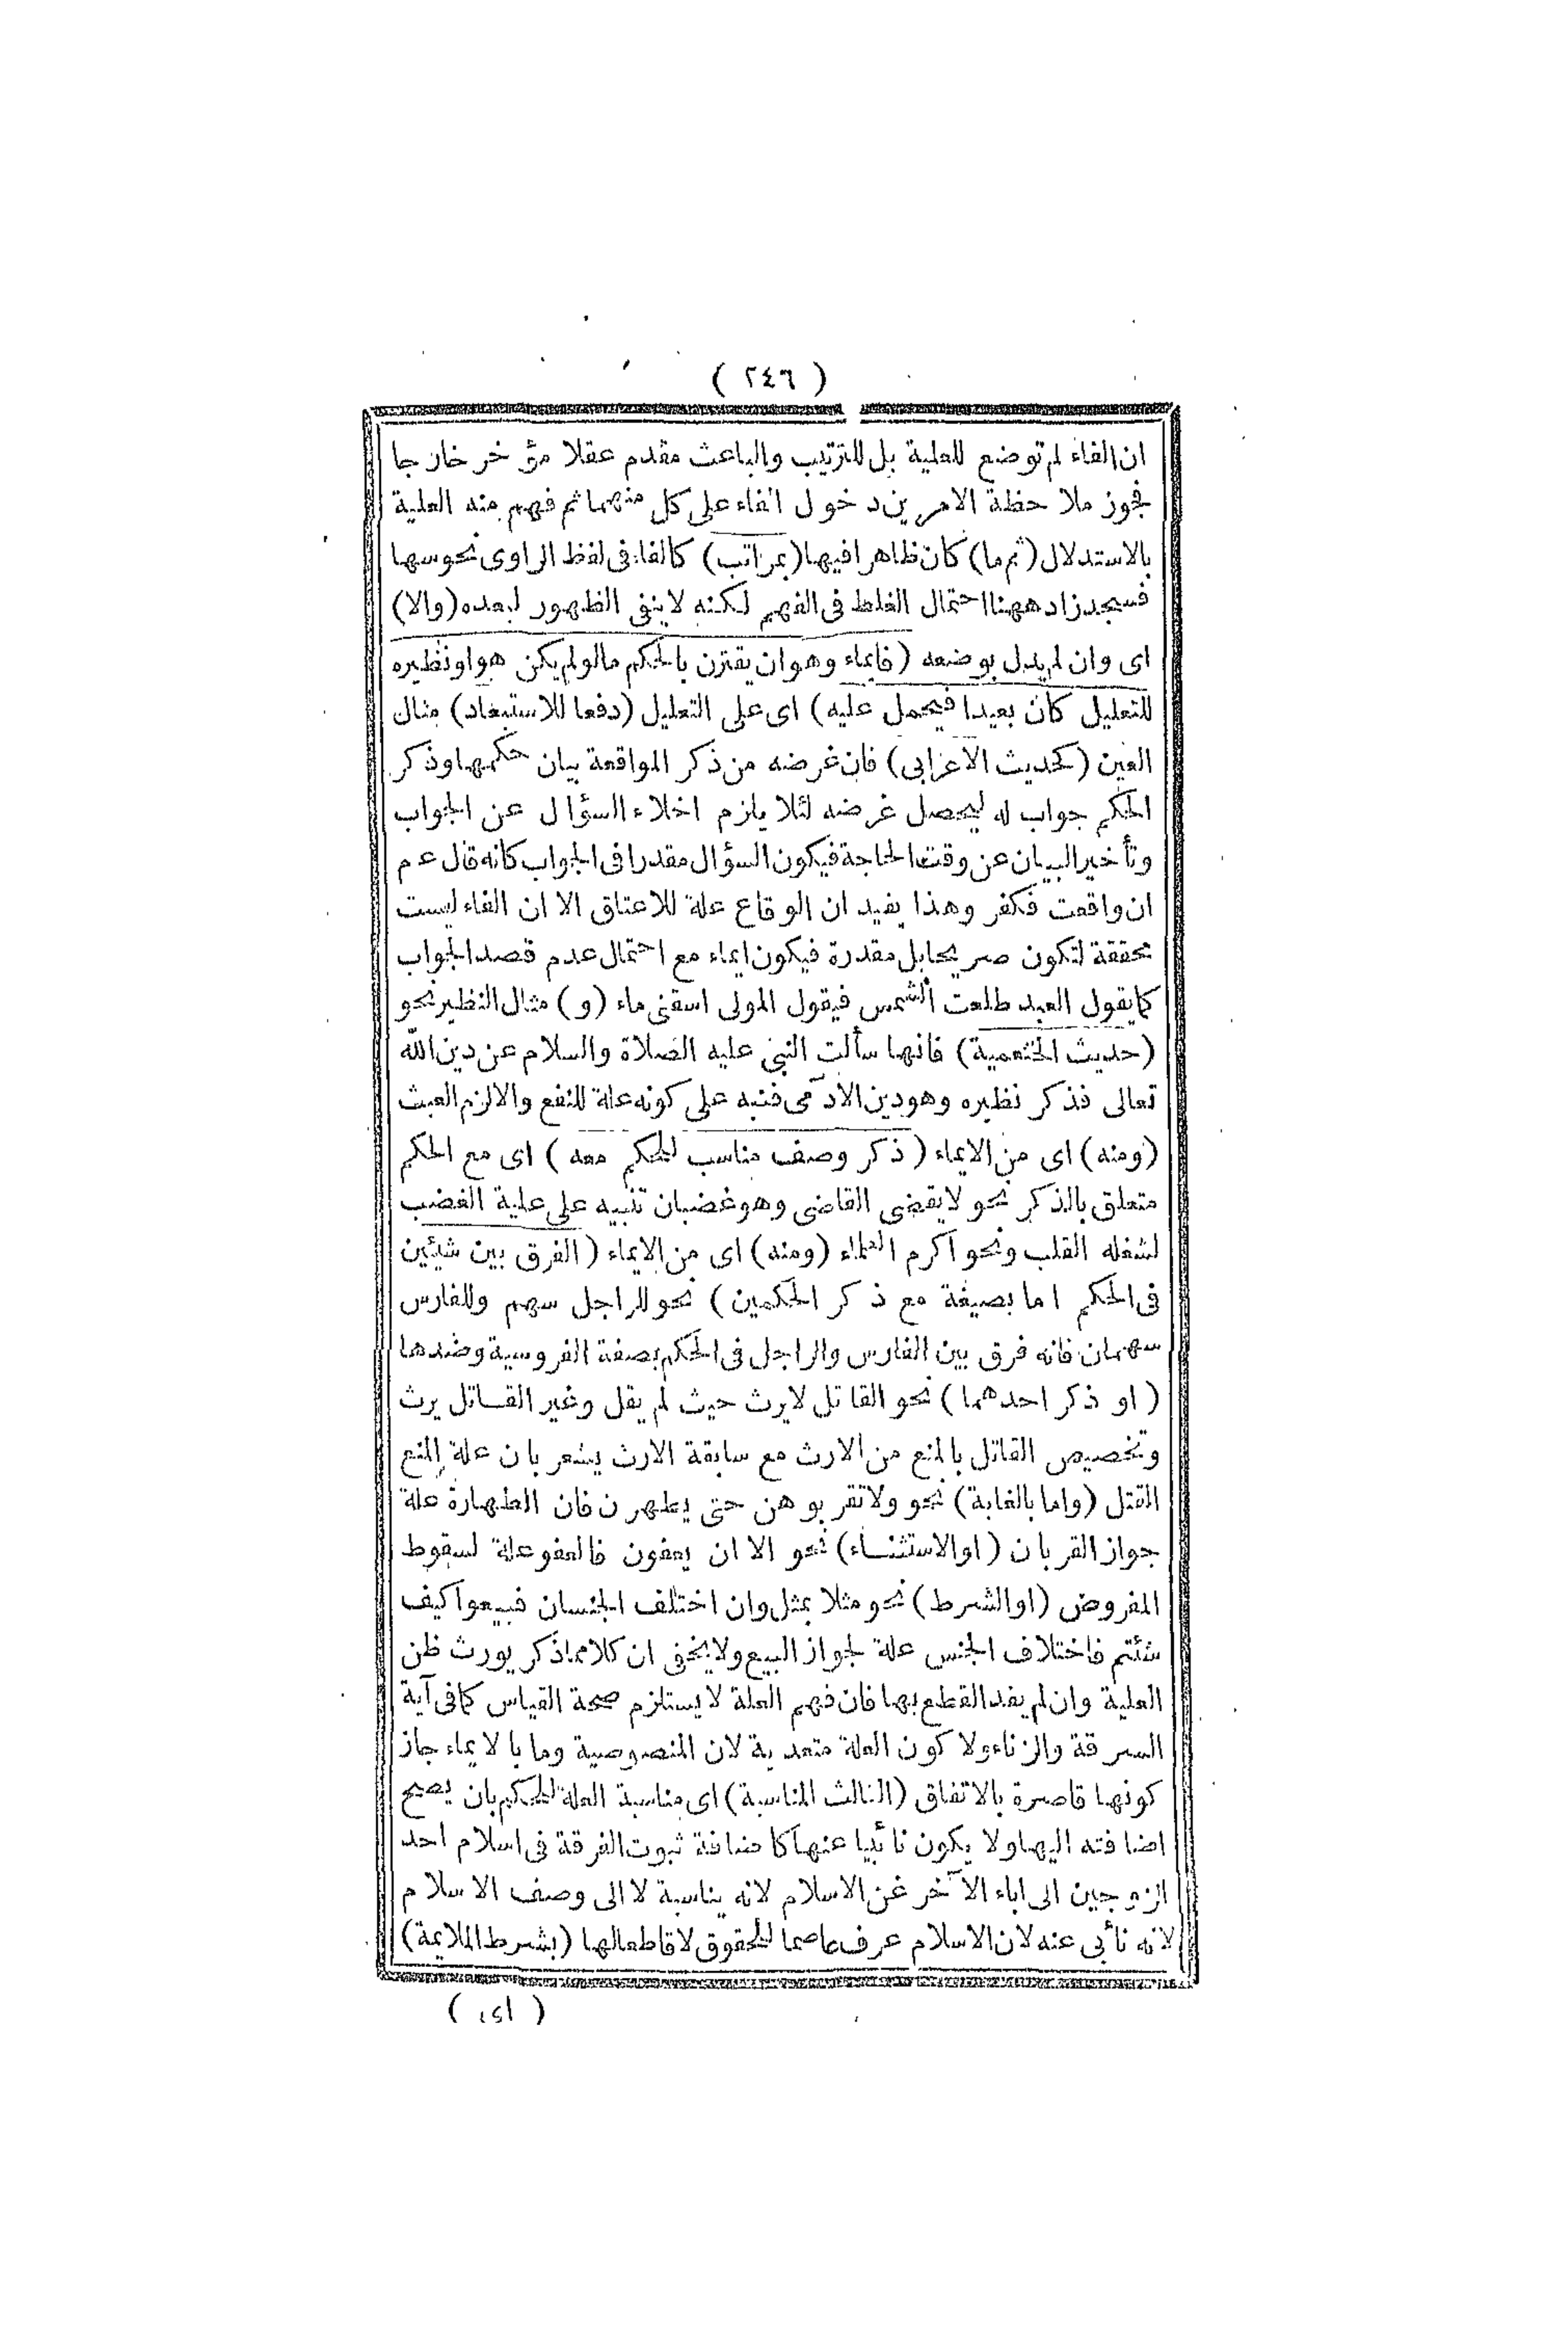 ( ٢٤٦ )
ان الفاء لم توضع للعلية بل للترتيب والباعث مقدم عقلا مؤخر خارجا
فجوز ملاحظة الامرين دخول الفاء على كل منهما ثم فهم منه العلية
بالاستدلال (ثم ما) كان ظاهرا فيها (بمراتب) كالفاء فى لفظ الراوى نحو سها
فسجد زاد ههنا احتمال الغلط فى الفهم لكنه لا ينفى الظهور لبعده (والا)
اى وان لم يدل بوضعه (فايماء وهو ان يقترن بالحكم ما لو لم يكن هو او نظيره
للتعليل كان بعيدا فيحمل عليه) اى على التعليل (دفعا للاستبعاد) مثال
العين (كحديث الاعرابى) فان غرضه من ذكر المواقعة بيان حكمها وذكر
الحكم جواب له ليحصل غرضه لئلا يلزم اخلاء السؤال عن الجواب
وتأخير البيان عن وقت الحاجة فيكون السؤال مقدرا فى الجواب كانه قال عم
ان واقعت فكفر وهذا يفيد ان الوقاع علة للاعتاق الا ان الفاء ليست
محققة لتكون صريحا بل مقدرة فيكون ايماء مع احتمال عدم قصد الجواب
كما يقول العبد طلعت الشمس فيقول المولى اسقنى ماء (و) مثال النظير نحو
(حديث الخثعمية) فانها سألت النبى عليه الصلاة والسلام عن دين الله
تعالى فذكر نظيره وهو دين الآدمى فنبه على كونه علة للنفع والا لزم العبث
(ومنه) اى من الايماء (ذكر وصف مناسب للحكم معه) اى مع الحكم
متعلق بالذكر نحو لا يقضى القاضى وهو غضبان تنبيه على علية الغضب
لشغله القلب ونحو اكرم العلماء (ومنه) اى من الايماء (الفرق بين شيئين
فى الحكم اما بصيغة مع ذكر الحكمين) نحو للراجل سهم وللفارس
سهمان فانه فرق بين الفارس والراجل فى الحكم بصفة الفروسية وضدها
(او ذكر احدهما) نحو القاتل لا يرث حيث لم يقل وغير القاتل يرث
وتخصيص القاتل بالمنع من الارث مع سابقة الارث يشعر بان علة المنع
القتل (واما بالغاية) نحو ولا تقربوهن حتى يطهرن فان الطهارة علة
جواز القربان (او الاستثناء) نحو الا ان يعفون فالعفو علة لسقوط
المفروض (او الشرط) نحو مثلا بمثل وان اختلف الجنسان فبيعوا كيف
شئتم فاختلاف الجنس علة لجواز البيع ولا يخفى ان كلا مما ذكر يورث ظن
العلية وان لم يفد القطع بها فان فهم العلة لا يستلزم صحة القياس كما فى آية
السرقة والزناء ولا كون العلة متعدية لان المنصوصية وما بالايماء جاز
كونها قاصرة بالاتفاق (الثالث المناسبة) اى مناسبة العلة للحكم بان يصح
اضافته اليها ولا يكون نائبيا عنها كاضافة ثبوت الفرقة فى اسلام احد
الزوجين الى اباء الآخر عن الاسلام لانه يناسبة لا الى وصف الاسلام
لانه نأبى عنه لان الاسلام عرف عاصما للحقوق لا قاطعا لها (بشرط الملايمة)
( اى )